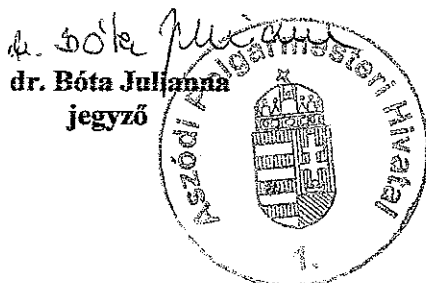 dr. Bóta Julianna
dr. Bóta Julianna
jegyző
Aszódi Polgármesteri Hivatal
1.